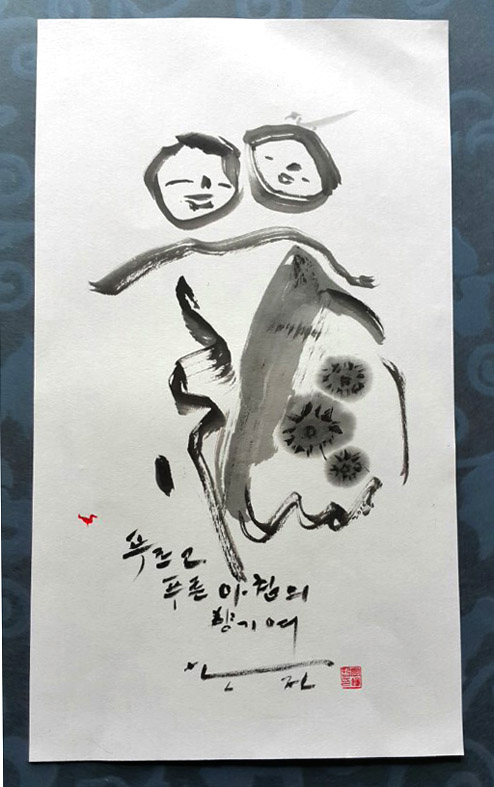 푸르고
푸른 아침의
향기여